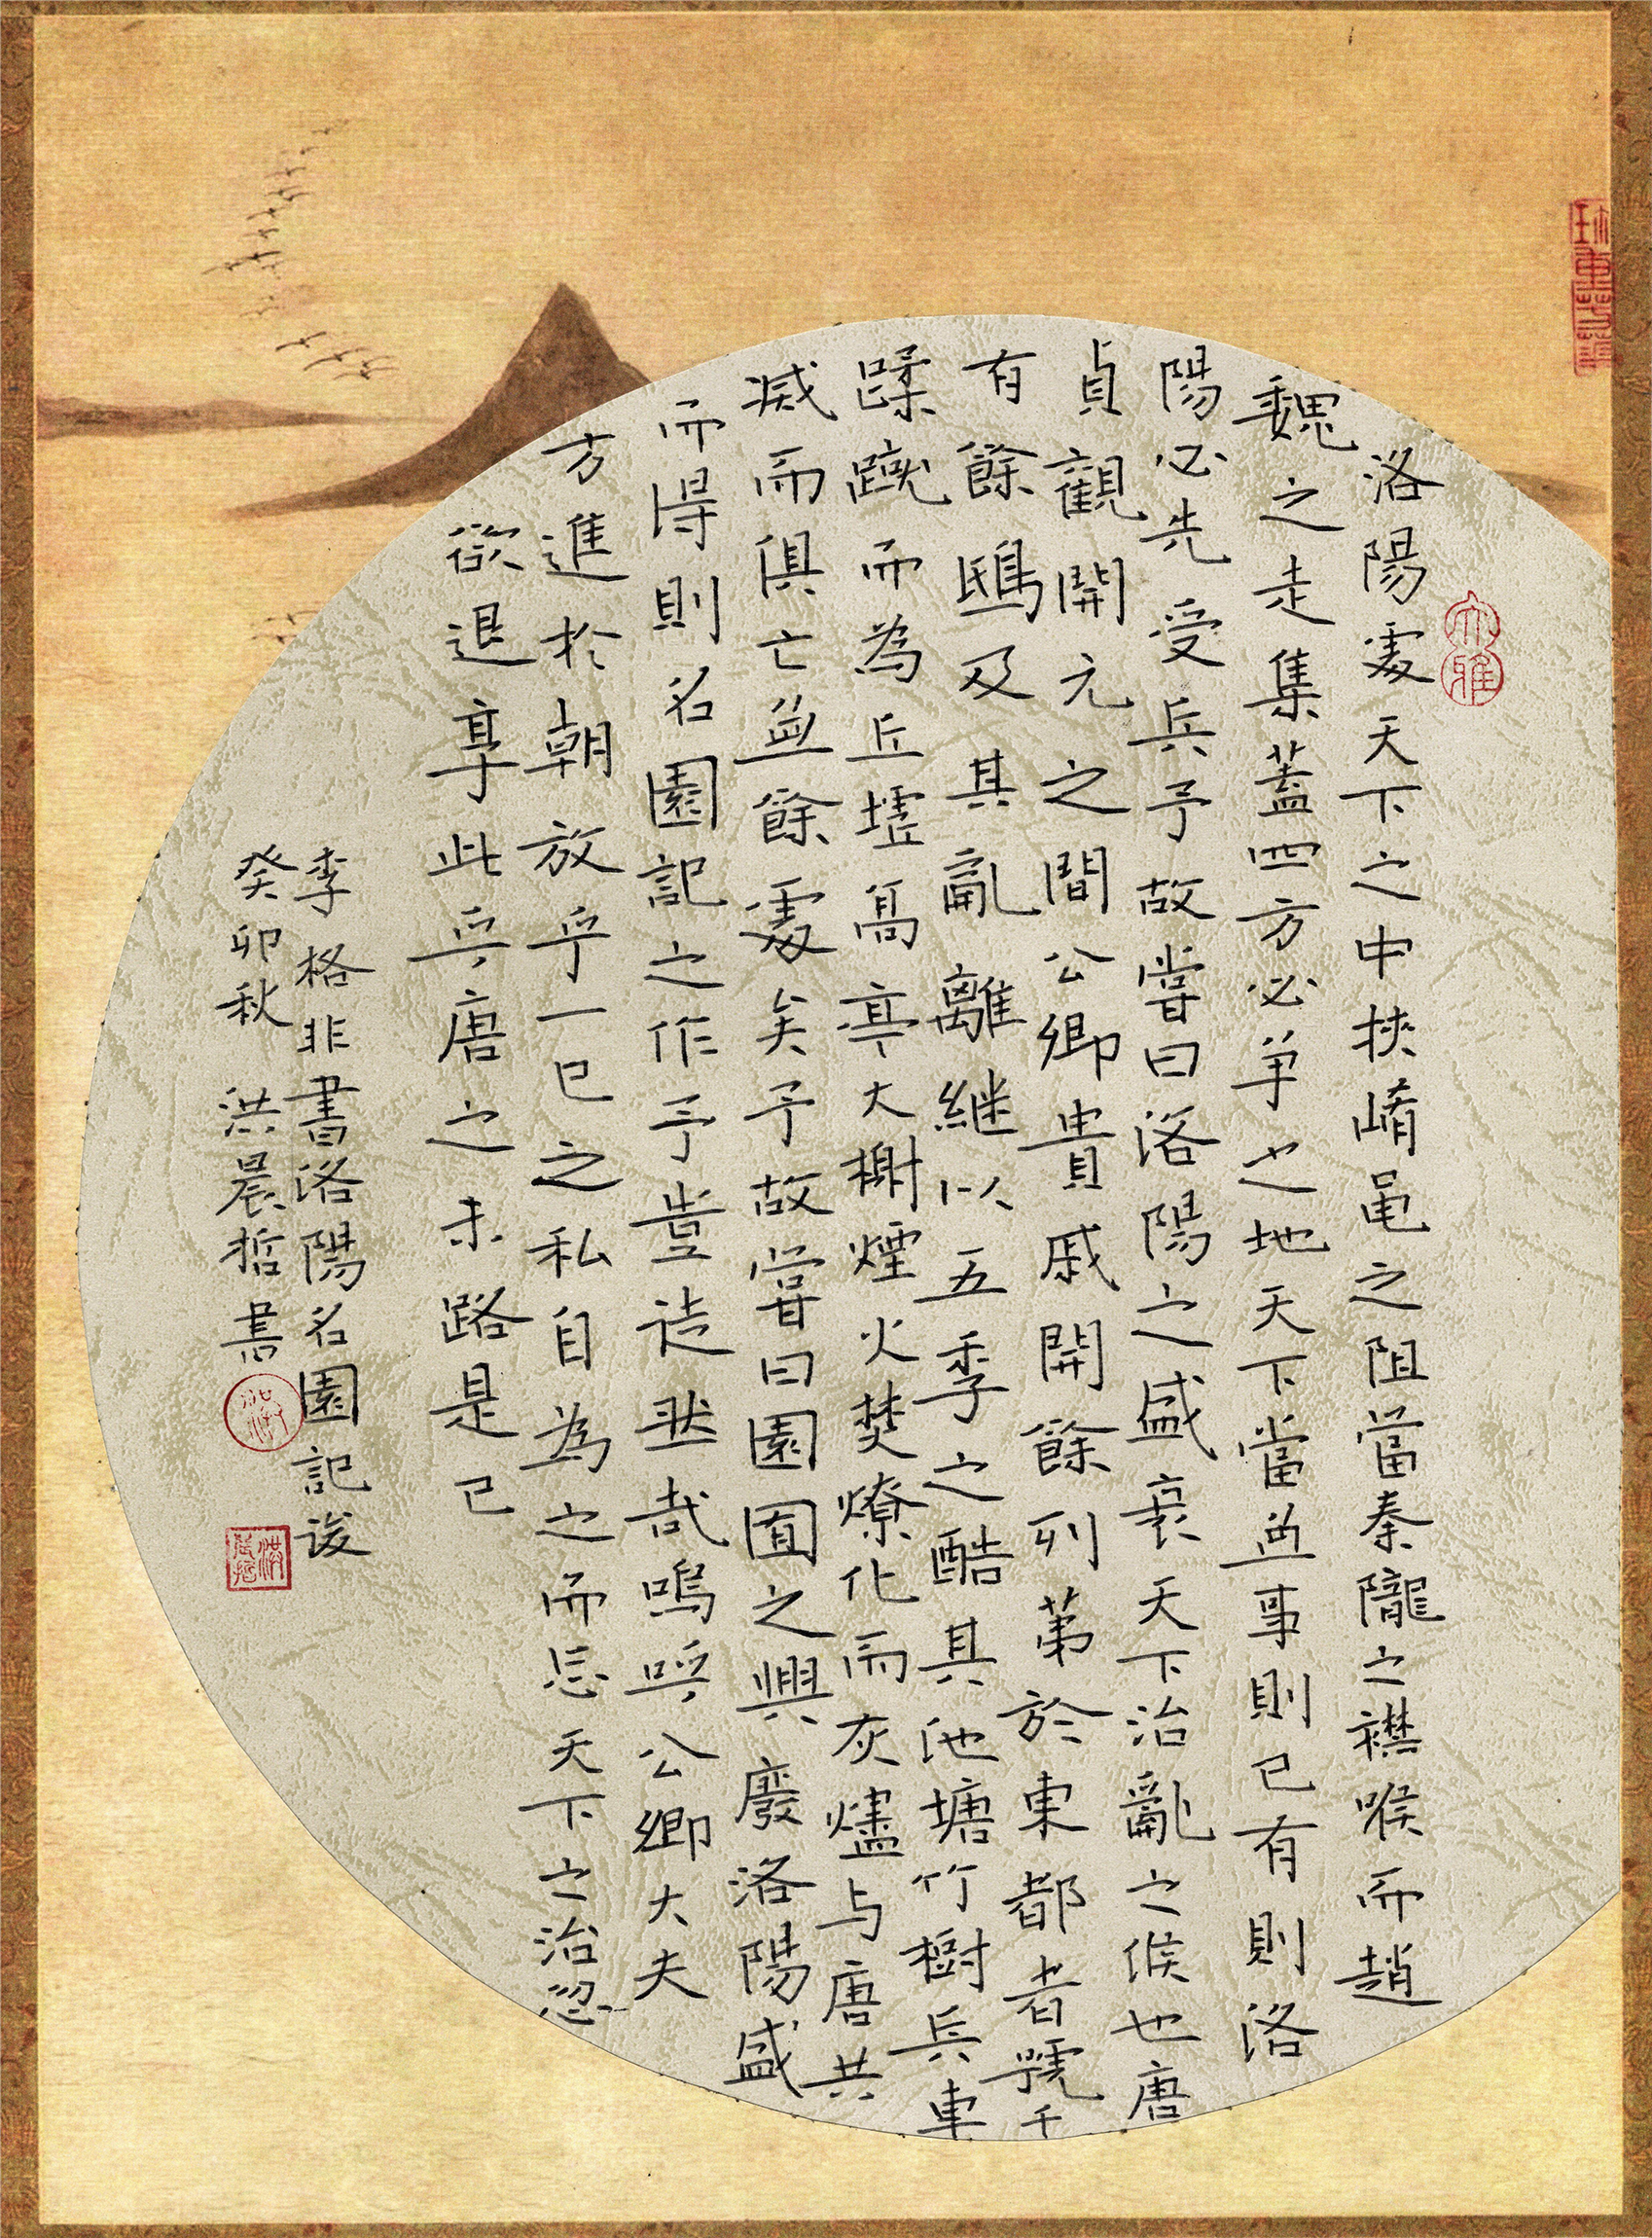 大雅
洛陽處天下之中挾崤黽之阻當秦隴之襟喉而趙
魏之走集蓋四方必争之地天下當無事則已有則洛
陽必先受兵予故嘗曰洛陽之盛衰天下治亂之候也唐
貞觀開元之間公卿貴戚開餘列第於東都者號千
有餘鴟及其亂離繼以五季之酷其池塘竹樹兵車
蹂蹴而為丘墟高亭大榭煙火焚燎化而灰燼与唐共
滅而俱亡無餘處矣予故嘗曰園囿之興廢洛陽盛
而得則名園記之作予豈徒然哉嗚呼公卿大夫
方進於朝放乎一己之私自為之而忘天下之治忽
欲退享此乎唐之末路是已
李格非書洛陽名園記後
癸卯秋 洪晨哲書
洪晨哲